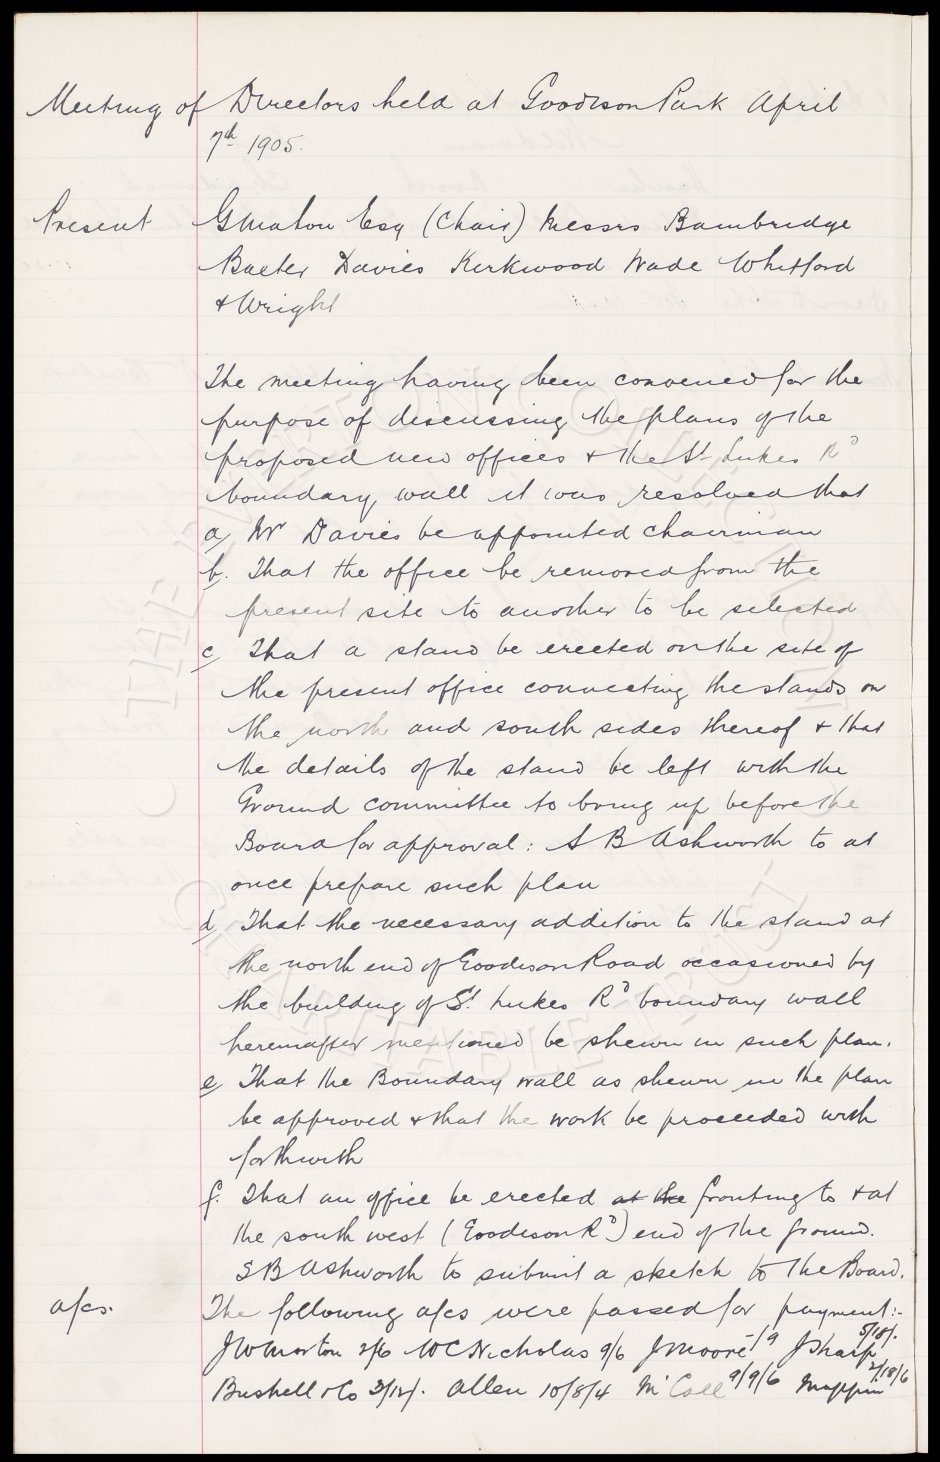 Meeting of Directors held at Goodison Park April
7th 1905.
Present G Mahon Esq (Chair) Messrs Bainbridge
Baxter Davies Kirkwood Wade Whitford
& Wright
The meeting having been convened for the
purpose of discussing the plans of the
proposed new offices & the St Lukes Rd
boundary wall it was resolved that
a, Mr Davies be appointed chairman
b. That the office be removed from the
present site to another to be selected
c, That a stand be erected on the site of
the present office connecting the stands on
the north and south sides thereof & that
the details of the stand be left with the
Ground committee to bring up before the
Board for approval: S B Ashworth to at
once prepare such plan
d, That the necessary addition to the stand at
the north end of Goodison Road occasioned by
the building of St. Lukes Rd boundary wall
hereinafter mentioned be shewn in such plan.
e, That the Boundary wall as shewn in the plan
be approved & that the work be proceeded with
forthwith
f. That an office be erected at the fronting to & at
the south west (Goodison Rd) end of the ground.
S B Ashworth to submit a sketch to the Board.
a/cs. The following a/cs were passed for payment:-
J W Morton 2/6 W C Nicholas 9/6 J Moore -/9 J Sharp 5/18/-.
Bushell & Co 2/12/-. Allen 10/8/4 McCall 9/9/6 Mappin 2/18/6